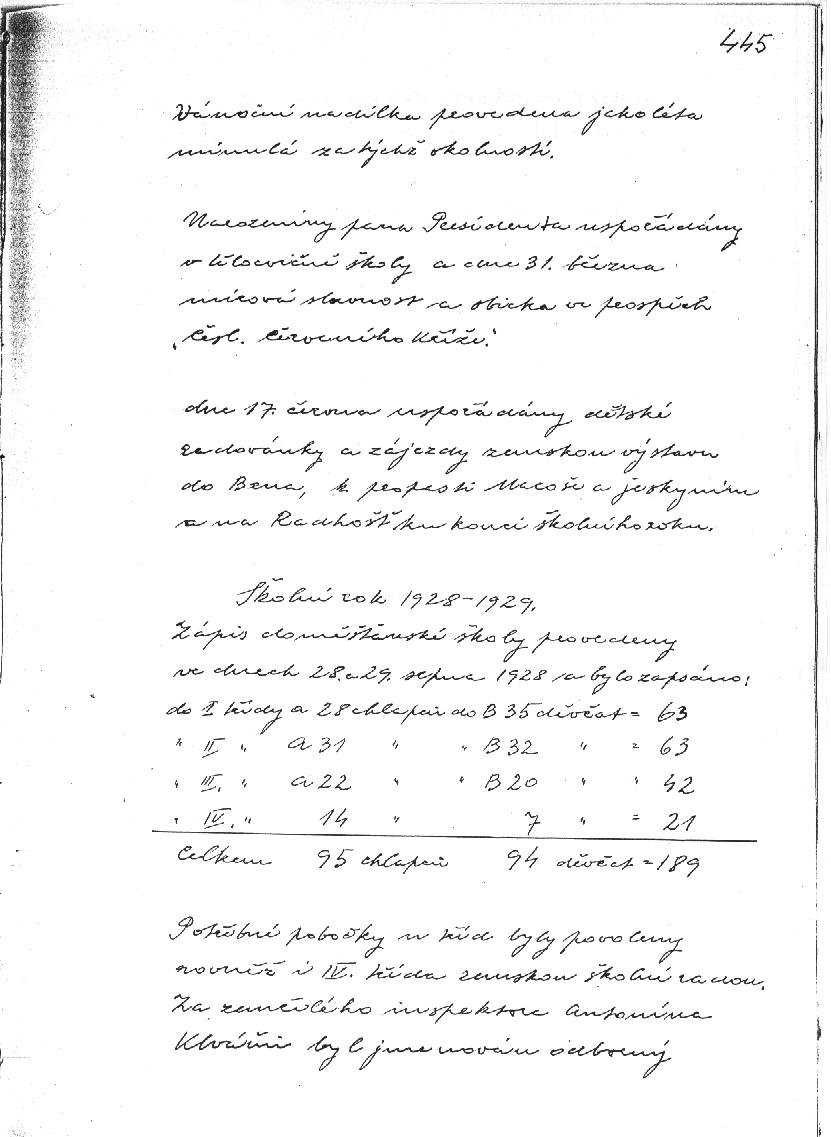 445
Vánoční nadílka provedena jako léta
minulá za týchž okolností.
Narozeniny pana Presidenta uspořádány
v tělocvičně školy a dne 31. března
mírová slavnost a sbírka ve prospěch
„Čsl. Červeného Kříže."
dne 17. června uspořádány dětské
radovánky a zájezdy zemskou výstavu
do Brna, k propasti Macoše a jeskyním
a na Radhošť ku konci školního roku.
Školní rok 1928-1929.
Zápis do měšťanské školy provedeny
ve dnech 28. a 29. srpna 1928 a bylo zapsáno:
do I třídy a 28 chlapců do B 35 děvčat = 63
" II " a 31 " " B 32 " = 63
" III. " a 22 " " B 20 " " 42
" IV. " 14 " 7 " = 21
Celkem 95 chlapců 94 děvčat = 189
Potřebné pobočky u tříd byly povoleny
rovněž i IV. třída zemskou školní radou.
Za zemřelého inspektora Antonína
Klváni byl jmenován odborný